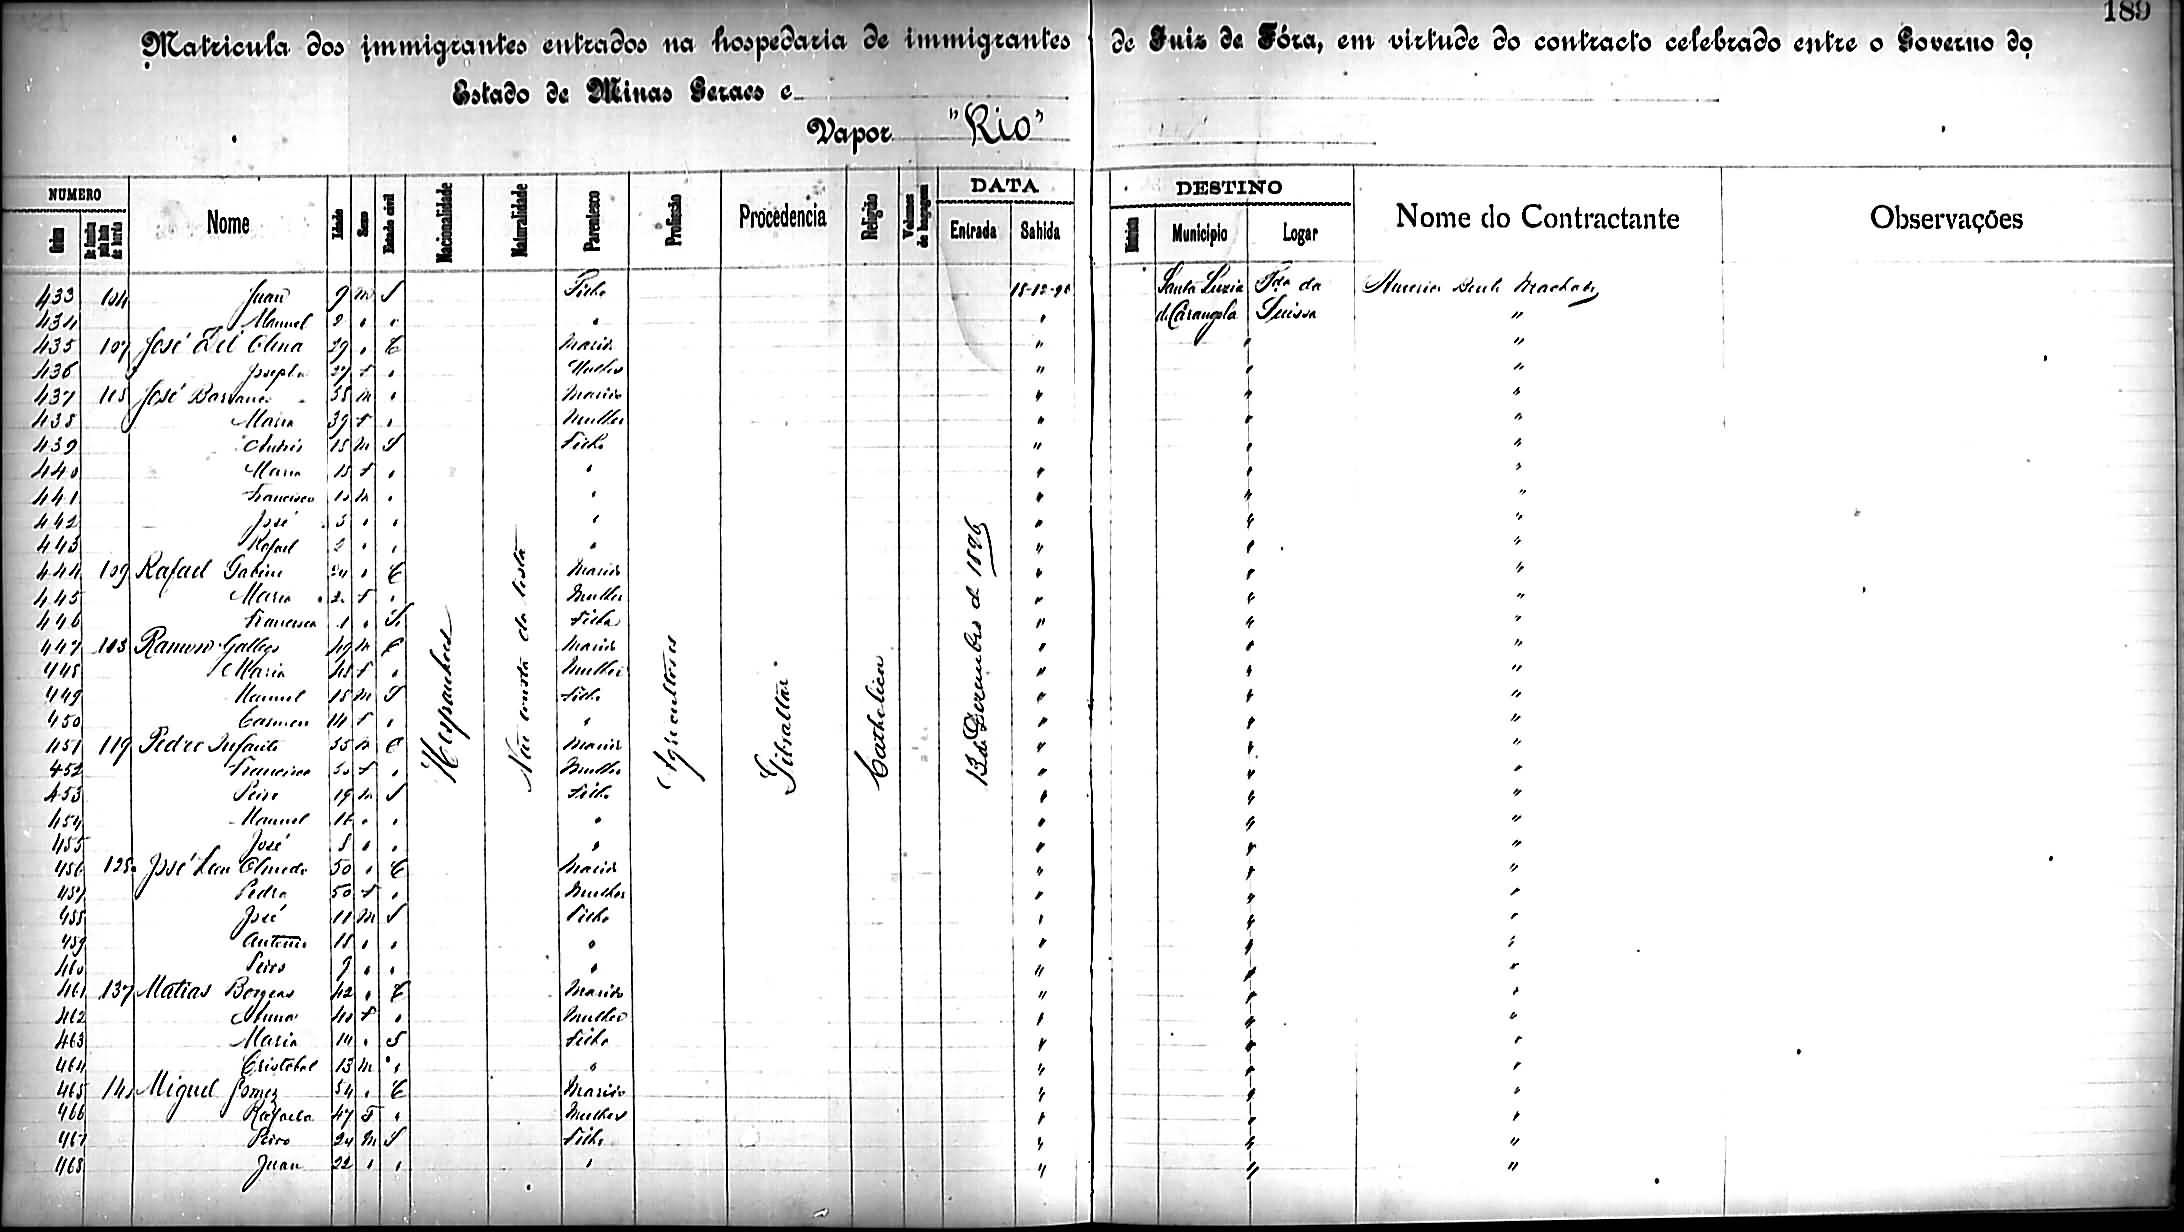 189
Matricula dos immigrantes entrados na hospedaria de immigrantes de Juiz de Fóra, em virtude do contracto celebrado entre o Governo do
Estado de Minas Geraes e
Vapor "Rio"
NUMERO DATA DESTINO
Ordem Nome Idade Sexo Estado civil Nacionalidade Naturalidade Parentesco Profissão Procedencia Religião Volumes de bagagem Entrada Sahida Districto Municipio Logar Nome do Contractante Observações
433 Juan 9 m S Filho 18-12-96 Santa Luzia Fda da Machado
434 Manuel 2 " " " " de Carangola Suissa "
435 107 José " C Marido " " "
436 Josepha 27 f " Mulher " " "
437 José m " Marido " " "
438 Maria 39 f " Mulher " " "
439 m S Filho " " "
440 Maria 15 f " " " " "
441 Francisco m " " " " "
442 José 5 " " " " " "
443 Rafael 2 " " " " " "
444 109 Rafael 24 " C Marido " " "
445 Maria f " Mulher " " "
446 Francisca 1 " S Filha " " "
447 113 Ramon Gallego 49 m C Marido " " "
448 Maria 45 f " Mulher " " "
449 Manuel 18 m S Filho " " "
450 Carmen 14 f " " " " "
451 119 Pedro Infante 55 m C Marido " " "
452 Francisca 50 f " Mulher " " "
453 Pedro 19 m S Filho " " "
454 Manuel 16 " " " " " "
455 José 8 " " " " " "
456 José Leon Olmedo 50 " C Marido " " "
457 Pedra 50 f " Mulher " " "
458 José 11 m S Filho " " "
459 Antonio 18 " " " " " "
460 Pedro 9 " " " " " "
461 137 Matias 42 " C Marido " " "
462 Anna 40 f " Mulher " " "
463 Maria 14 " S Filha " " "
464 Cristobal 13 m " " " " "
465 Miguel Gomez 54 " C Marido " " "
466 Rafaela 47 f " Mulher " " "
467 Pedro 24 m S Filho " " "
468 Juan 22 " " " " " "
Hespanhoes
Não consta da lista
Agricultores
Gibraltar
Catholica
13 de Dezembro de 1896